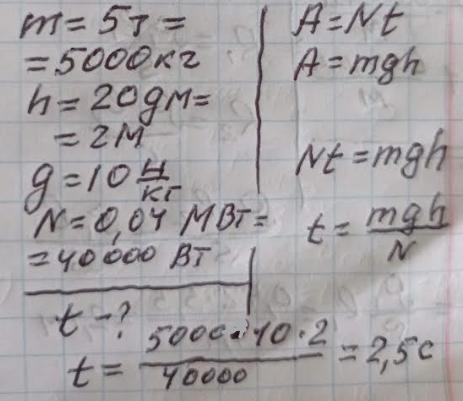 m = 5т =
= 5000кг
h = 20дм =
= 2м
g = 10 Н/кг
N = 0,04 МВт =
= 40000 Вт
t - ?
A = Nt
A = mgh
Nt = mgh
t = mgh/N
t = 5000·10·2/40000 = 2,5с